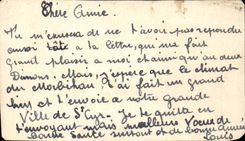 Chère Amie.
Tu m'excusera de ne t'avoir pas repondu
aussi tôt à ta lettre, qui ma fait
Grand plaisir a moi ainsi qu'au deux
Démons. Mais, j'espère que le climat
du Morbihan t'ai fait un grand
bien et t'envoie a notre grande
Ville de St Cyr. Je te quitte en
t'envoyant mes meilleurs Voeux de
bonne Santé surtout et de bonne année
Louis